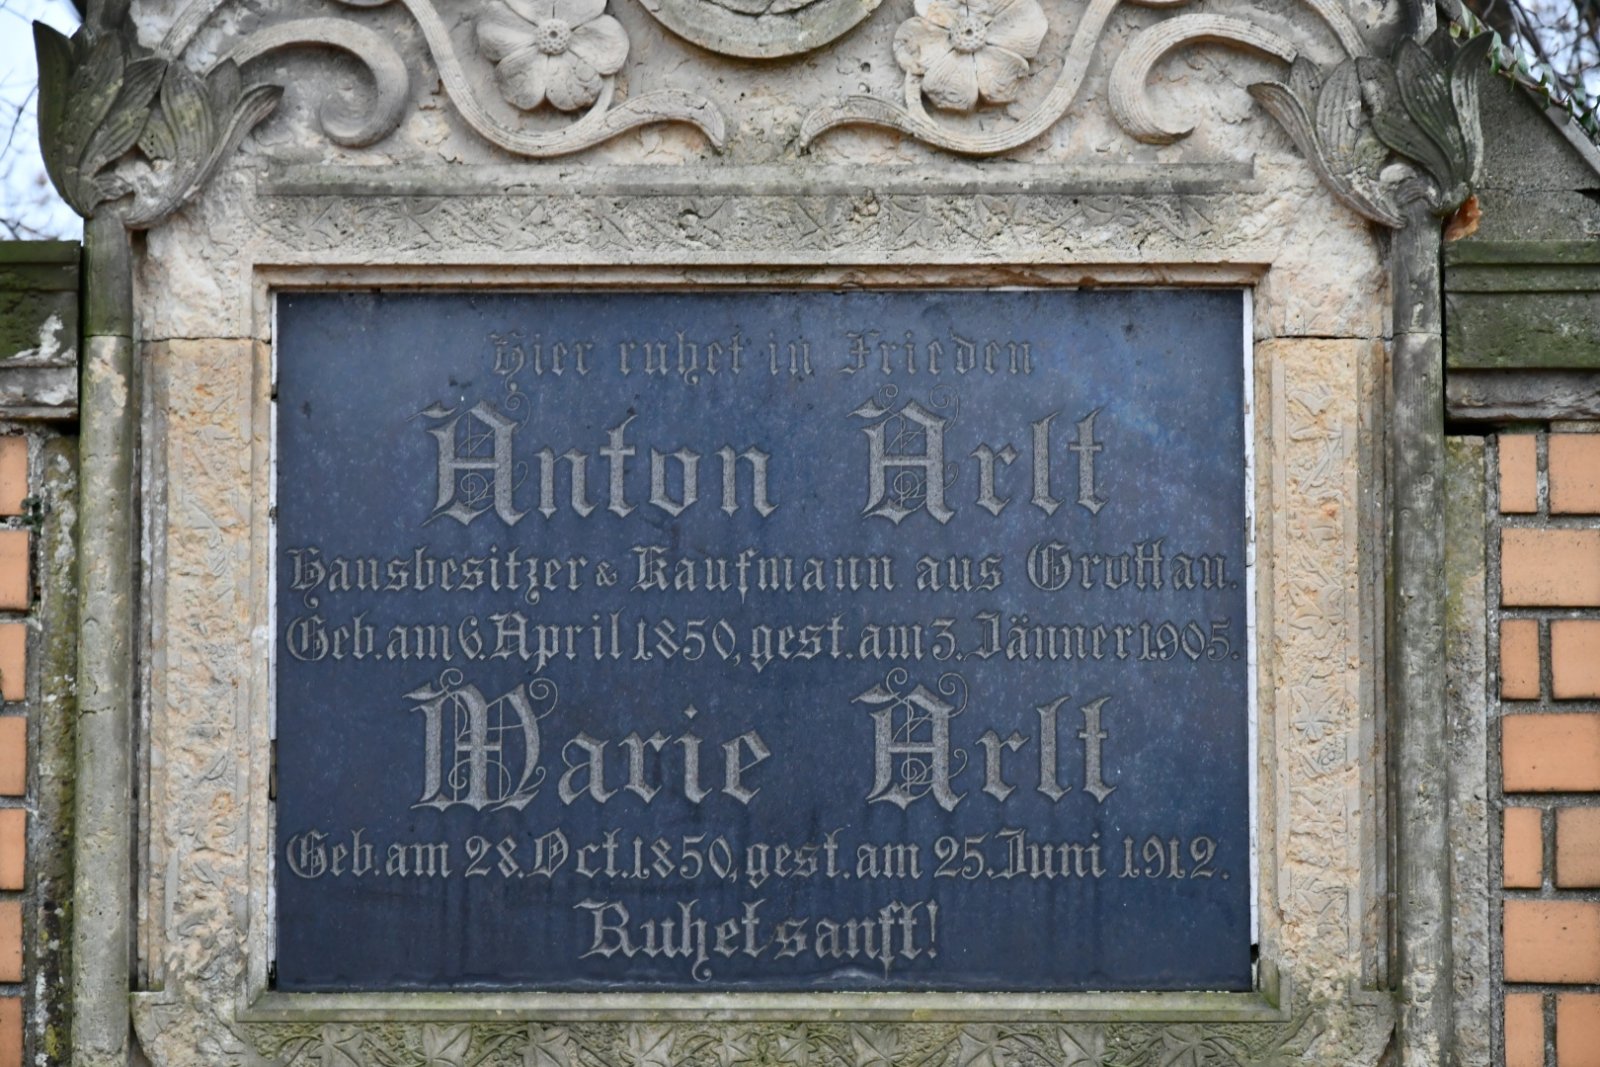 Hier ruhet in Frieden
Anton Arlt
Hausbesitzer & Kaufmann aus Grottau.
Geb. am 6. April 1850, gest. am 3. Jänner 1905.
Marie Arlt
Geb. am 28. Oct. 1850, gest. am 25. Juni 1912.
Ruhet sanft!